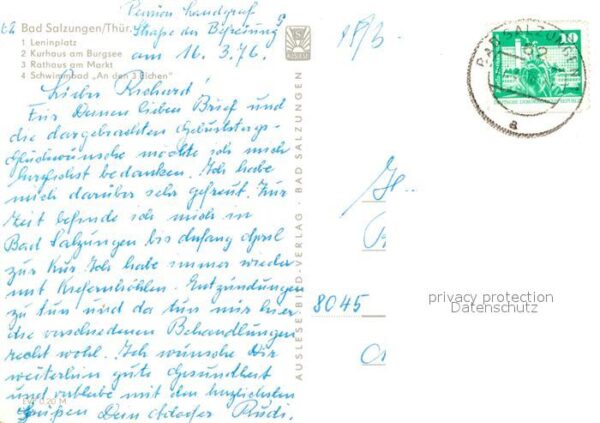 Bad Salzungen/Thür.
1 Leninplatz
2 Kurhaus am Burgsee
3 Rathaus am Markt
4 Schwimmbad „An den 3 Eichen"
Pension Landgraf
Straße der Befreiung 9
am 16.3.76.
Lieber Richard!
Für Deinen lieben Brief und
die dargebrachten Geburtstags-
glückwünsche möchte ich mich
herzlichst bedanken. Ich habe
mich darüber sehr gefreut. Zur
Zeit befinde ich mich in
Bad Salzungen bis Anfang April
zur Kur. Ich habe immer wieder
mit Kiefernhöhlen. Entzündungen
zu tun und da tun mir hier
die verschiedenen Behandlungen
recht wohl. Ich wünsche Dir
weiterhin gute Gesundheit
und verbleibe mit den herzlichsten
Grüßen Dein Rudi.
AUSLESE-BILD-VERLAG · BAD SALZUNGEN
BAD SALZUNGEN
a
10
DEUTSCHE DEMOKRATISCHE REPUBLIK
8045
privacy protection
Datenschutz